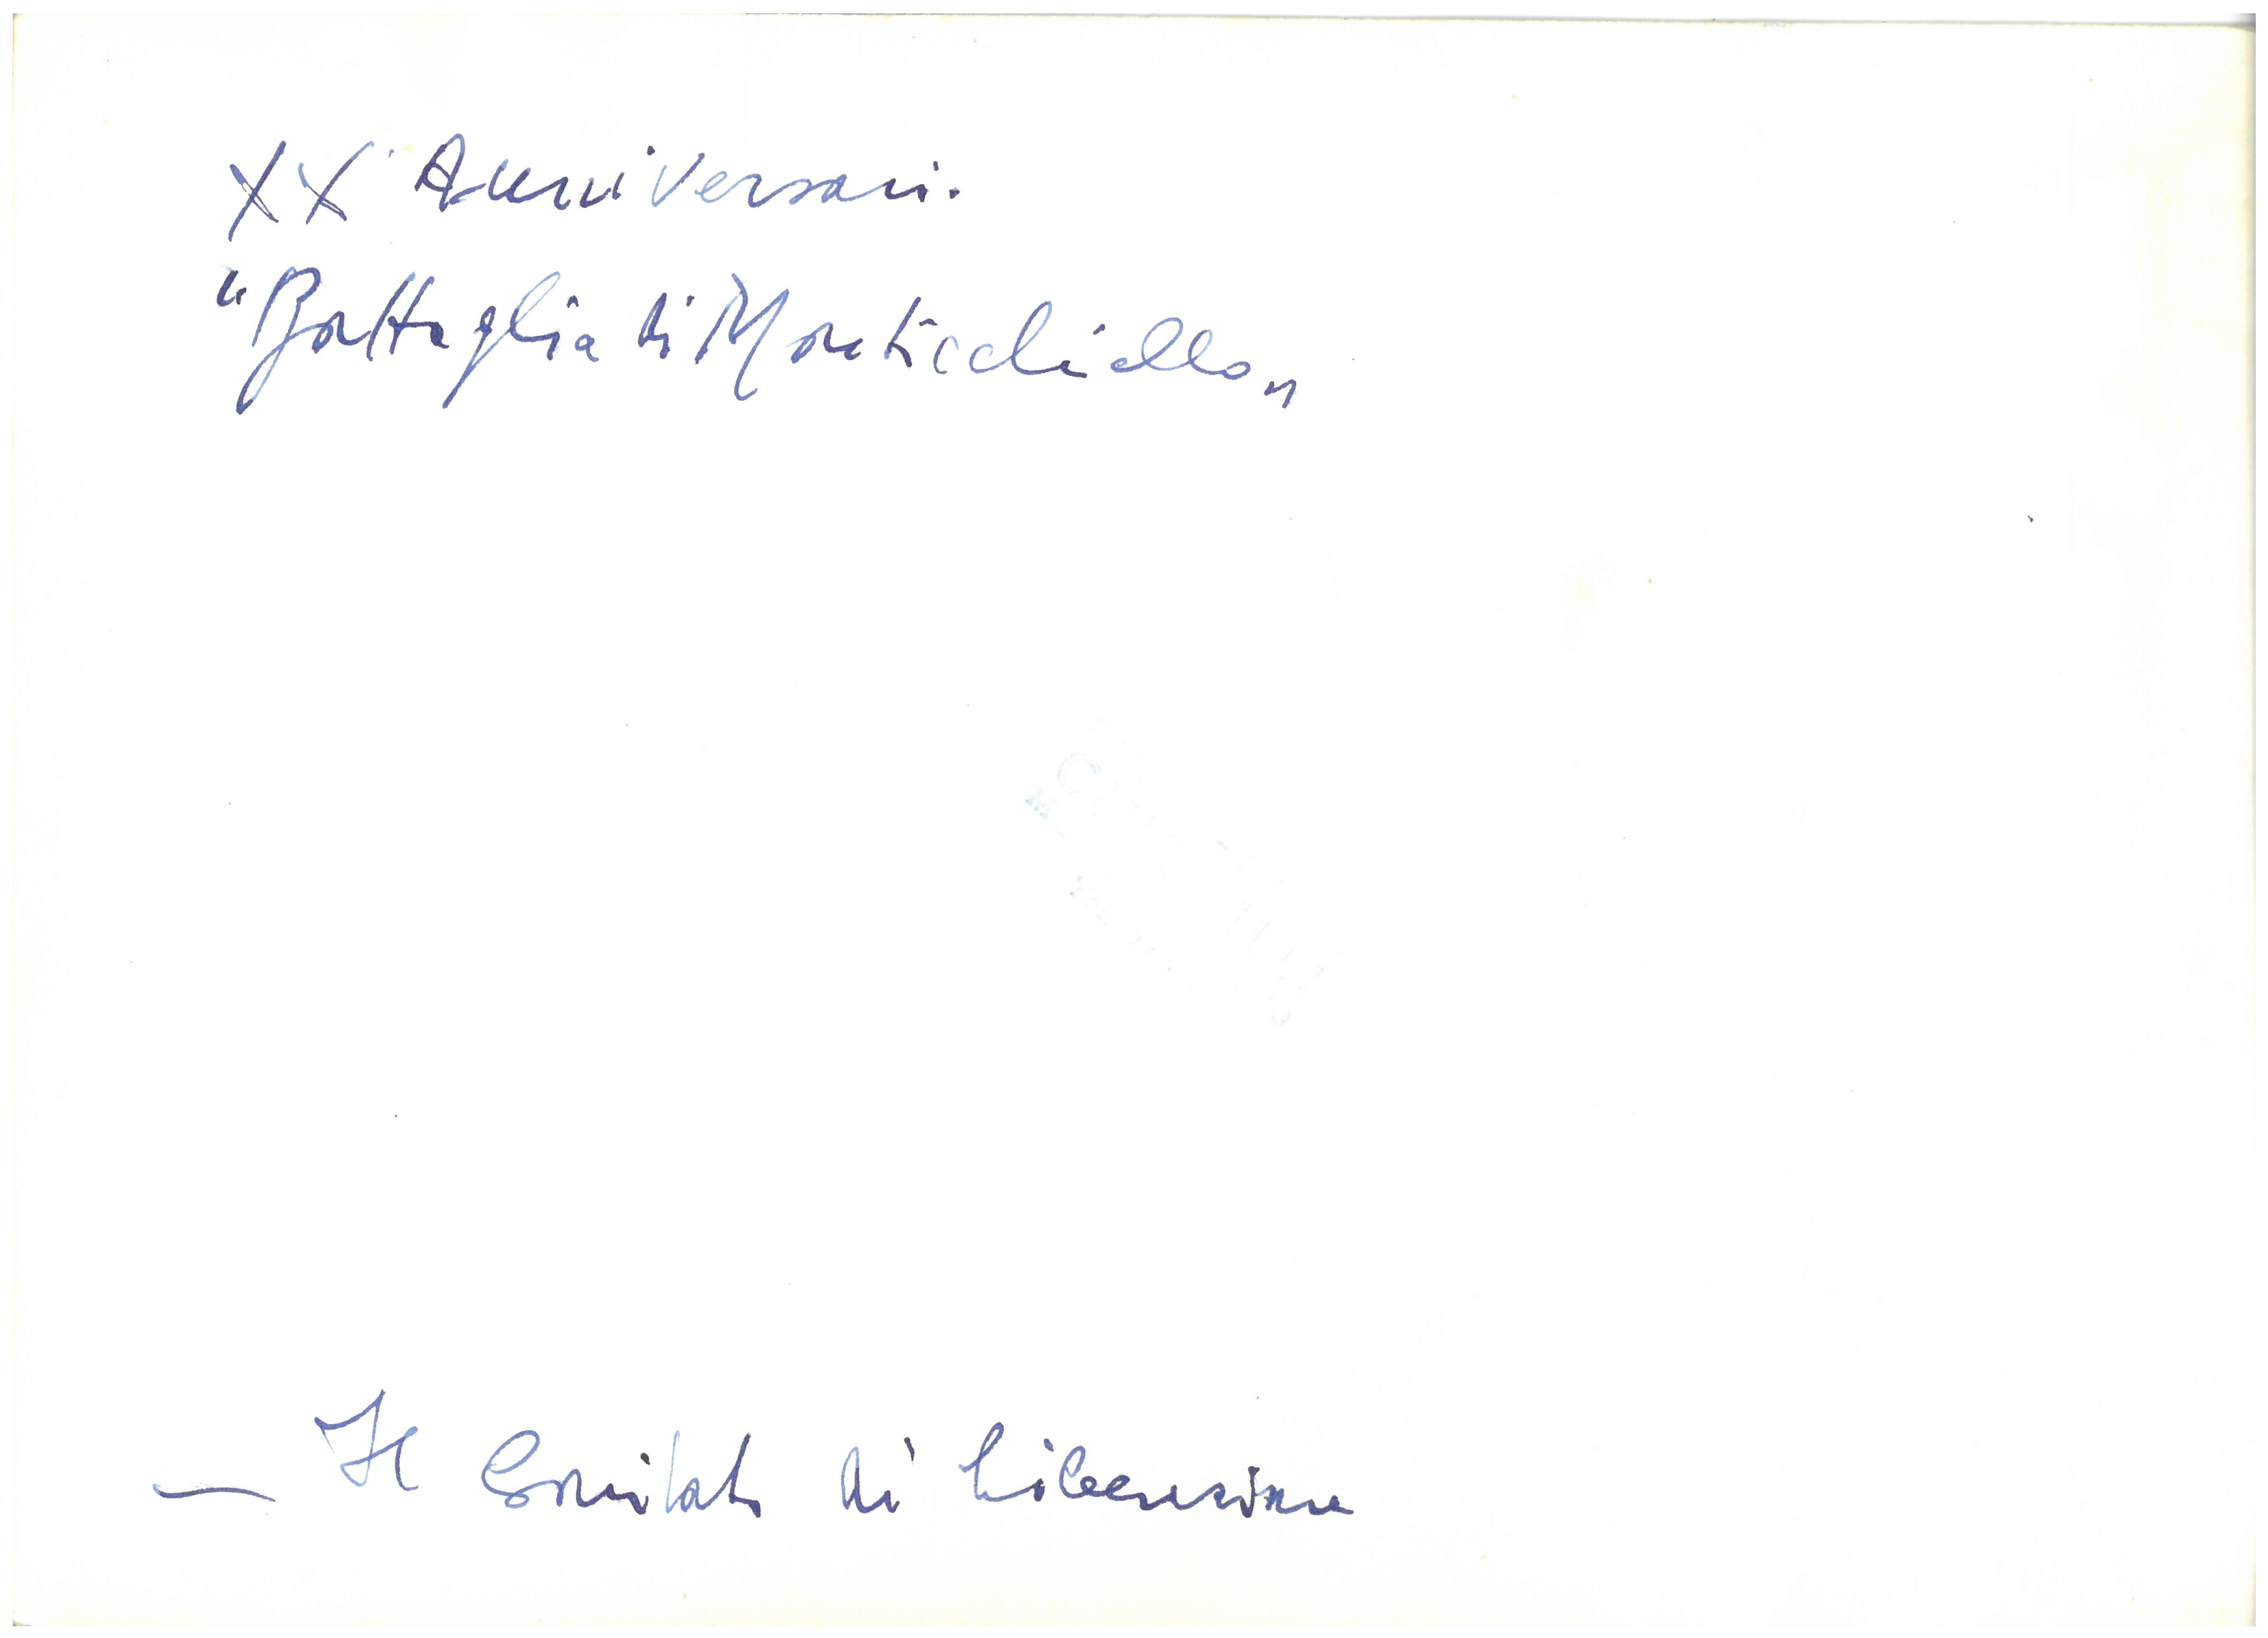 XX° Anniversari.
"Battaglia di Monticchiello"
— Il Comitato di Liberazione